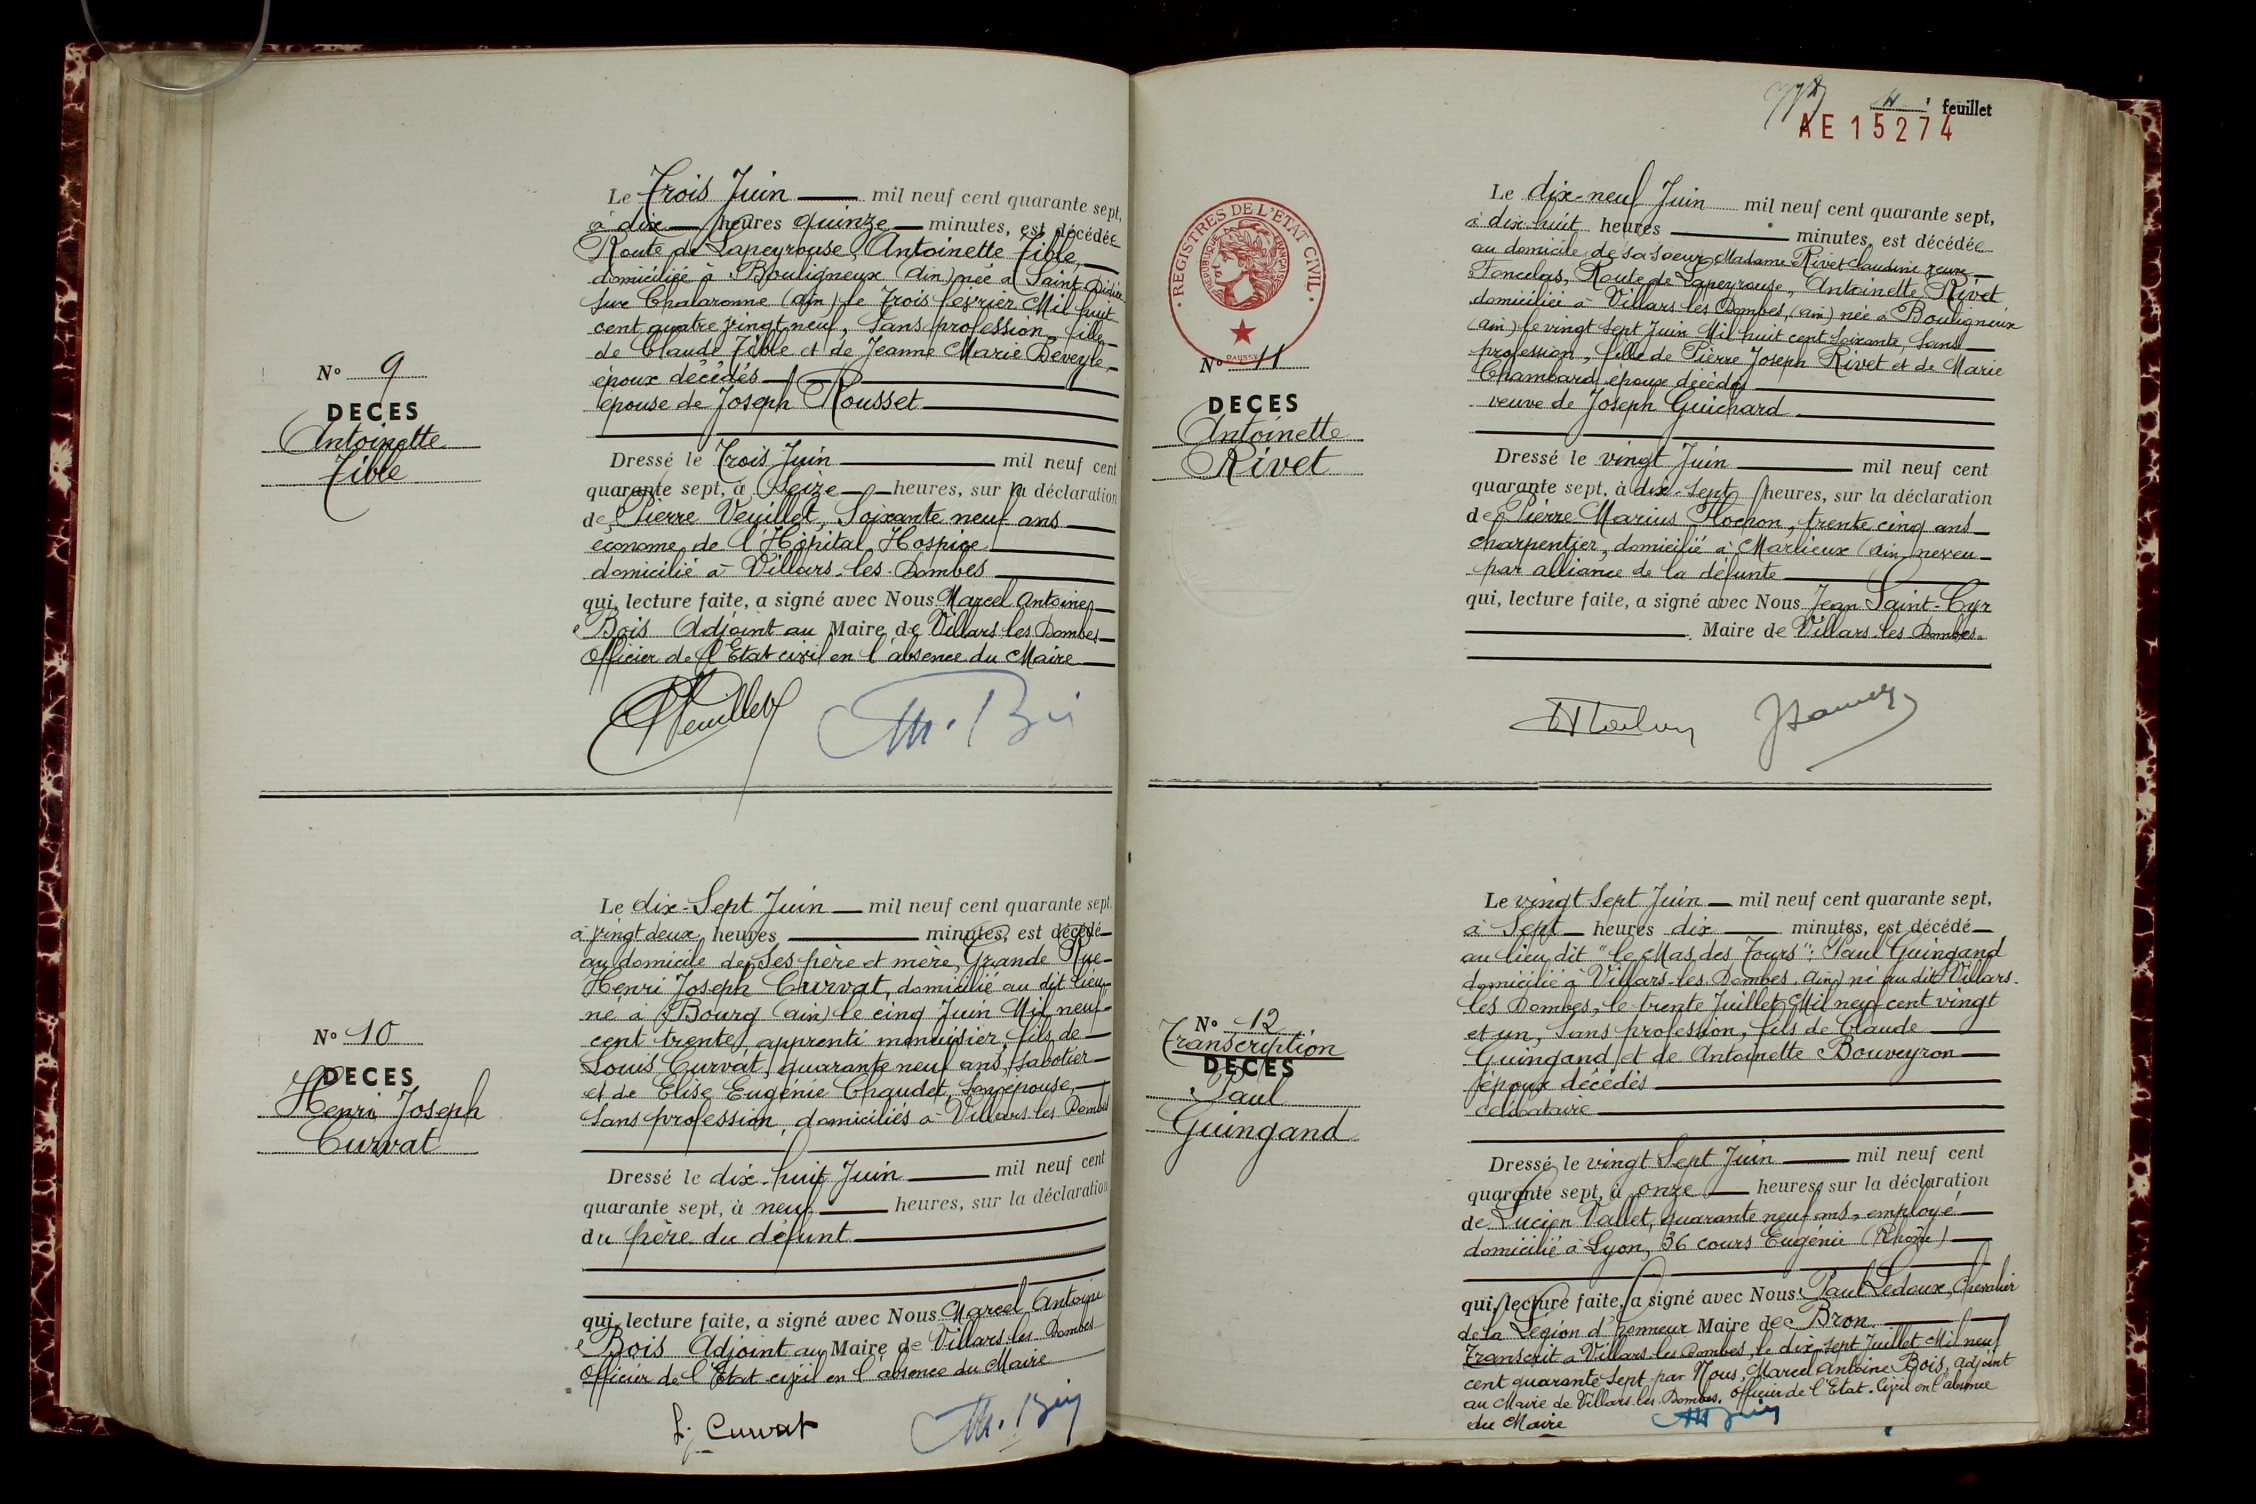 N° 9
DECES
Antoinette
Tible
Le Trois Juin mil neuf cent quarante sept,
à dix heures quinze minutes, est décédée
Route de Lapeyrouse, Antoinette Tible,
domiciliée à Bouligneux (Ain) née à Saint Didier
sur Chalaronne (Ain) le Trois février Mil huit
cent quatre vingt neuf, Sans profession, fille
de Claude Tible et de Jeanne Marie Deveyle,
époux décédés
épouse de Joseph Rousset
Dressé le Trois Juin mil neuf cent
quarante sept, à Seize heures, sur la déclaration
de Pierre Veuillet, Soixante neuf ans
économe de l'Hôpital Hospice
domicilié à Villars-les-Dombes
qui, lecture faite, a signé avec Nous Marcel Antoine
Bois Adjoint au Maire de Villars les Dombes
Officier de l'Etat civil en l'absence du Maire
PVeuillet M. Bois
N° 10
DECES
Henri Joseph
Curvat
Le dix-Sept Juin mil neuf cent quarante sept,
à vingt deux heures minutes, est décédé
au domicile de ses père et mère, Grande Rue
Henri Joseph Curvat, domicilié au dit lieu
né à Bourg (Ain) le cinq Juin Mil neuf
cent trente, apprenti menuisier, fils de
Louis Curvat, quarante neuf ans, Sabotier
et de Elise Eugénie Chaudet, son épouse,
Sans profession, domiciliés à Villars les Dombes
Dressé le dix-huit Juin mil neuf cent
quarante sept, à neuf heures, sur la déclaration
du père du défunt
qui, lecture faite, a signé avec Nous Marcel Antoine
Bois Adjoint au Maire de Villars-les-Dombes
Officier de l'Etat civil en l'absence du Maire
L. Curvat M. Bois
4 feuillet
AE 15274
REGISTRES DE L'ETAT CIVIL
REPUBLIQUE FRANÇAISE
N° 11
DECES
Antoinette
Rivet
Le dix-neuf Juin mil neuf cent quarante sept,
à dix-huit heures minutes, est décédée
au domicile de sa soeur Madame Rivet Claudine veuve
Route de Lapeyrouse, Antoinette Rivet
domiciliée à Villars les Dombes, (Ain) née à Bouligneux
(Ain) le vingt Sept Juin Mil huit cent Soixante, Sans
profession, fille de Pierre Joseph Rivet et de Marie
Chambard, époux décédés
veuve de Joseph Guichard
Dressé le vingt Juin mil neuf cent
quarante sept, à dix-Sept heures, sur la déclaration
de Pierre Marius Flochon, trente cinq ans
charpentier, domicilié à Marlieux (Ain, neveu
par alliance de la défunte
qui, lecture faite, a signé avec Nous Jean Saint-Cyr
Maire de Villars-les Dombes.
N° 12
Transcription
DECES
Paul
Guingand
Le vingt Sept Juin mil neuf cent quarante sept,
à Sept heures dix minutes, est décédé
au lieu dit "le Mas des Tours": Paul Guingand
domicilié à Villars-les Dombes (Ain) né au dit Villars-
les Dombes, le trente Juillet Mil neuf cent vingt
et un, Sans profession, fils de Claude
Guingand et de Antoinette Bouveyron
époux décédés
célibataire
Dressé le vingt Sept Juin mil neuf cent
quarante sept, à onze heures, sur la déclaration
de Lucien Vallet, quarante neuf ans, employé
domicilié à Lyon, 36 cours Eugénie (Rhône)
qui, lecture faite, a signé avec Nous Paul Ledoux, Chevalier
de la Légion d'honneur Maire de Bron
Transcrit à Villars-les Dombes, le dix-Sept Juillet Mil neuf
cent quarante Sept par Nous, Marcel Antoine Bois, adjoint
au Maire de Villars-les Dombes. Officier de l'Etat-Civil en l'absence
du Maire